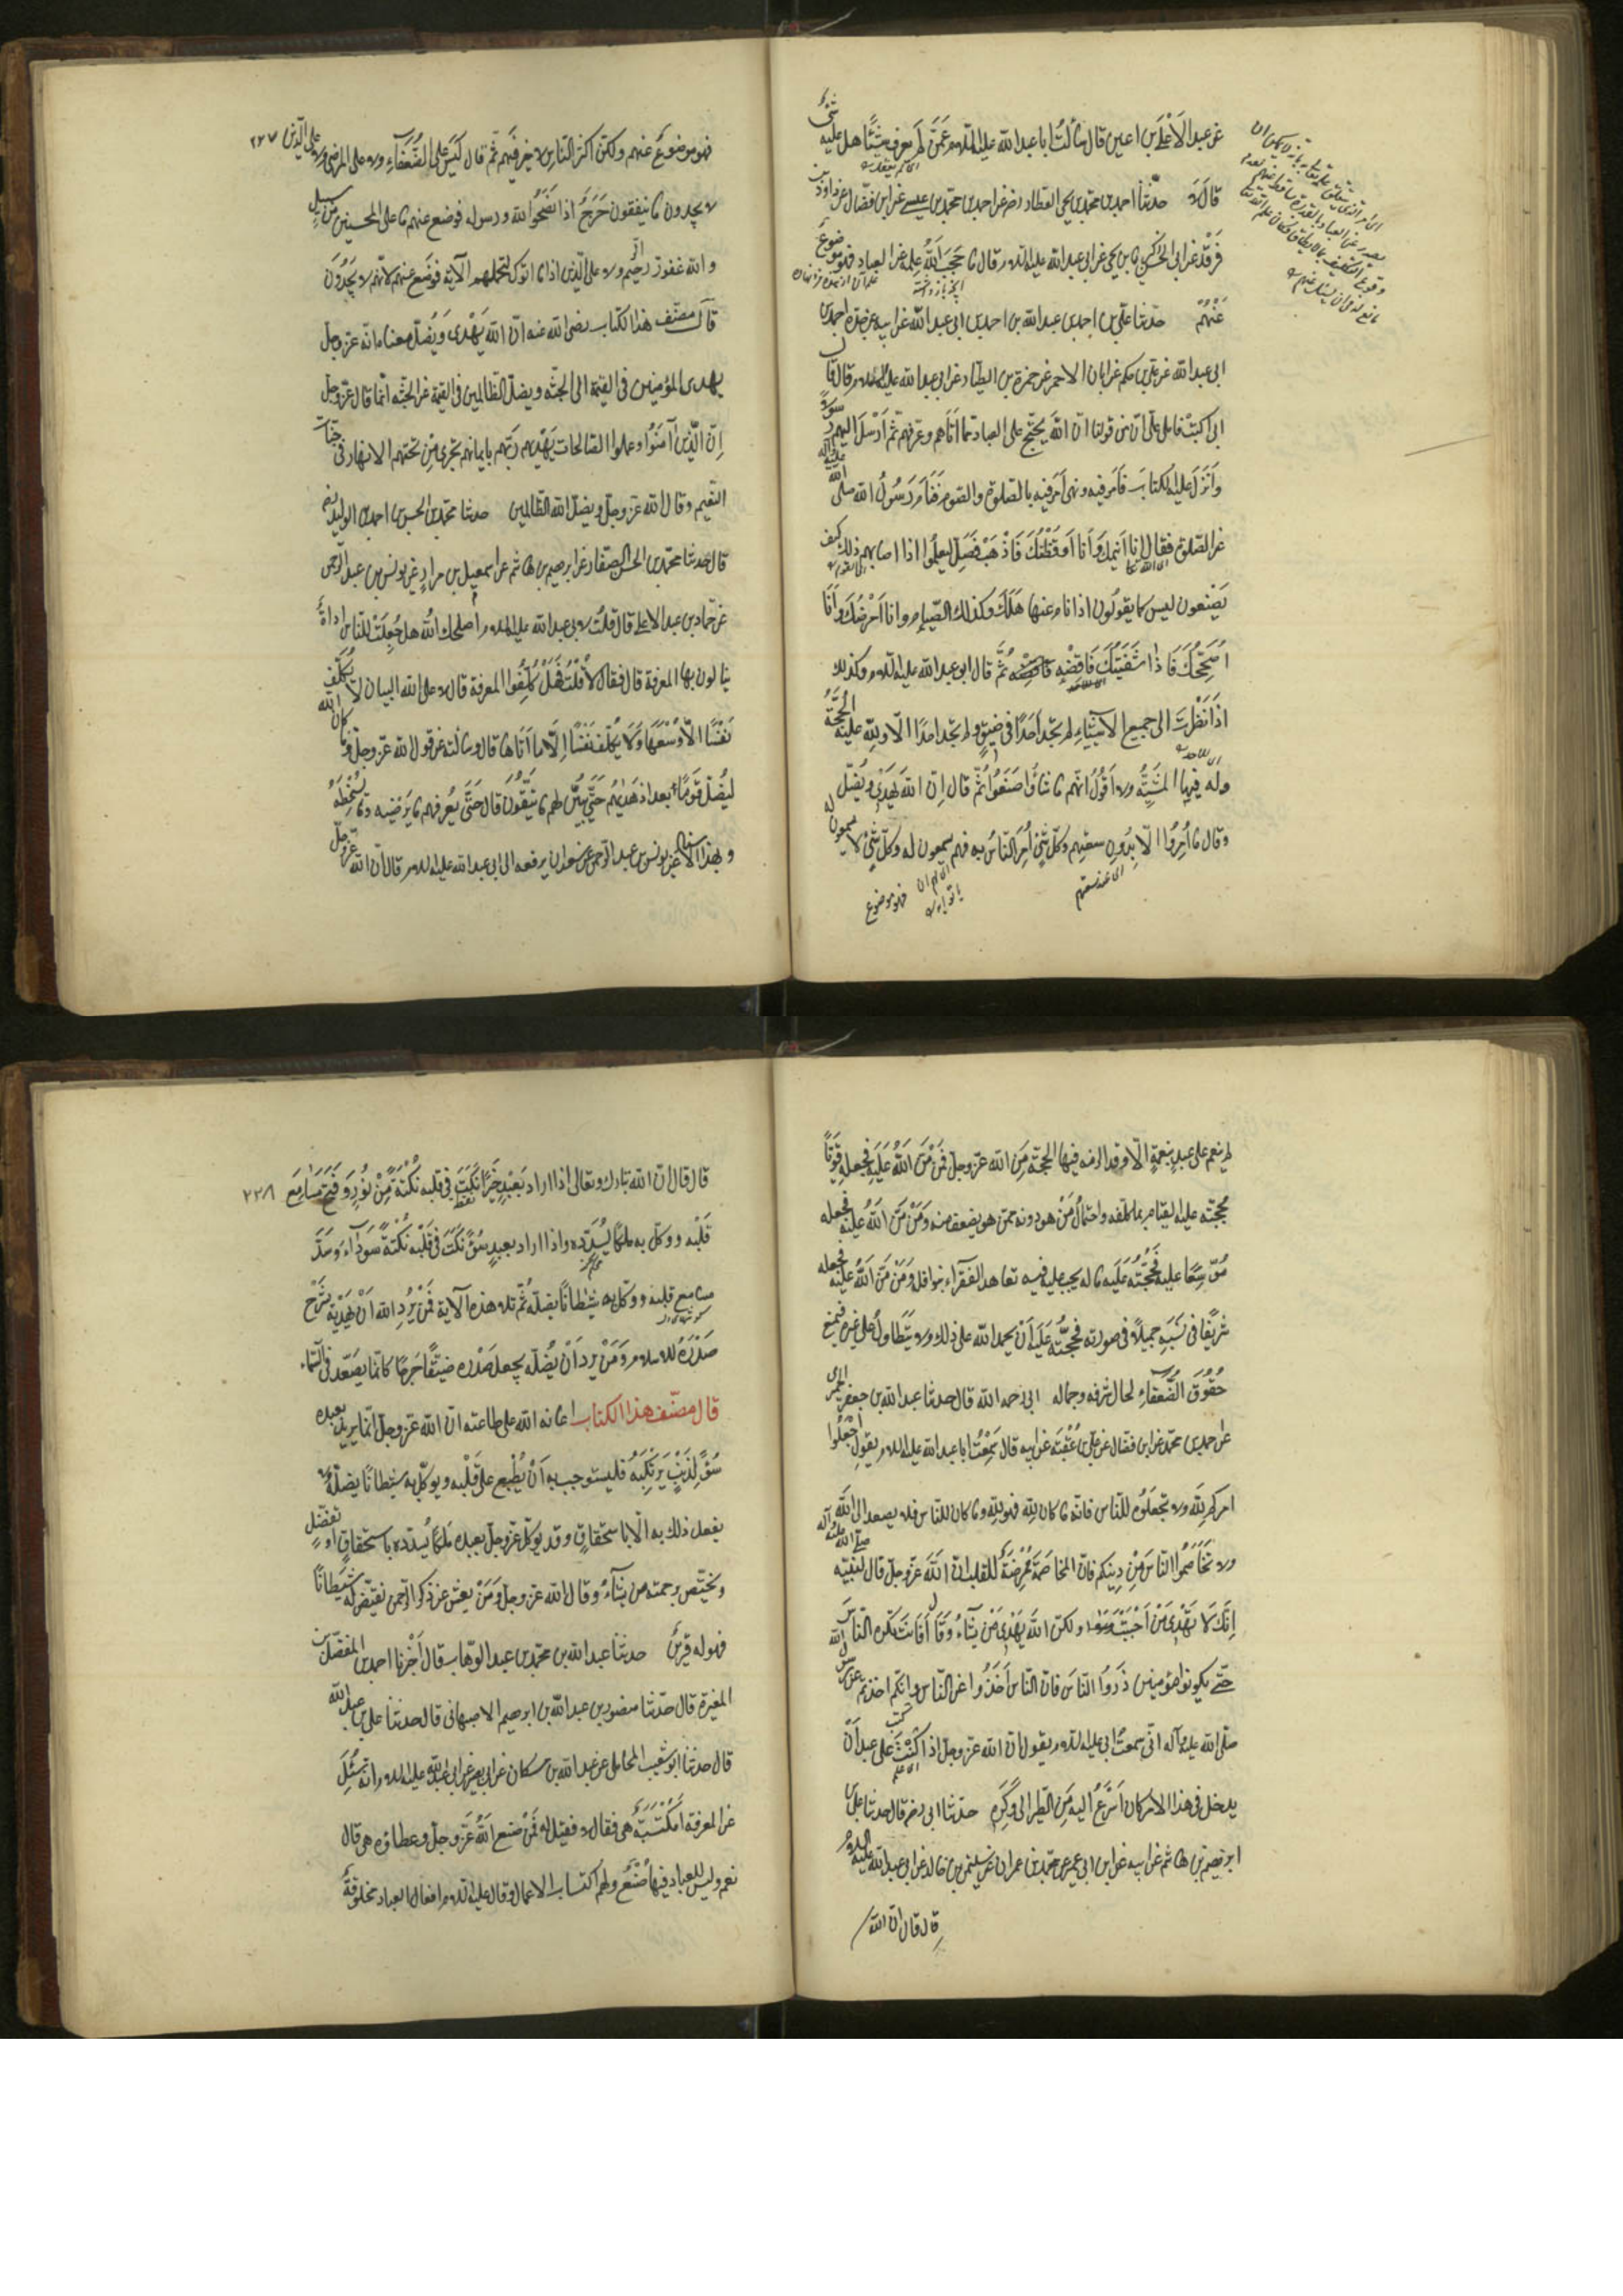 عن عبد الأعلى بن اعين قال سألتُ ابا عبد الله عليه السلام عَمَّن لم يعرف شيئًا هل عليه شئ
قال لا حدثنا احمد بن محمد بن يحيى العطار رضه عن احمد بن محمد بن عيسى عن ابن فضال عن داود بن
فَرْقَد عن ابى الحسن زكريا بن يحيى عن ابى عبد الله عليه السلام قال ما حَجَبَ اللّٰهُ علمه عن العباد فهو موضوع
عَنْهُمْ حدثنا على بن احمد بن عبد الله بن احمد بن ابى عبد الله عن ابيه عن جده احمد بن
ابى عبد الله عن على بن حكم عن ابان الاحمر عن حمزة بن الطيار عن ابى عبد الله عليه السلام قال قال
لى اكتبْ فاملى علىّ انّ من قولنا ان اللهَ يحتجّ على العباد بما آتاهم وعرفهم ثم اَرْسَلَ اليهم رسولًا
وأنزَلَ عليه الكتابَ فأمر فيه ونهى أمر فيه بالصلوة والصوم فنام رَسُولُ الله صلى الله عليه وآله
عن الصلوة فقال انا اُنيمك وَأنا اُوقظُكَ فَاذْهَبْ فَصَلِّ ليعلمُوا اذا اصابهم ذلك كيف
يَصْنعون ليس كما يقولون اذا نام عنها هَلَكَ وكذلك الصّيام انا اُمْرِضُكَ وأنَا
اُصَحِّحُكَ فَاذا شَفَيْتُكَ فَاقْضِهِ ثُمَّ قال ابو عبد الله عليه السلام وكذلك
اذا نَظَرْتَ الى جميع الاشياءِ لم تجد أحَدًا فى ضيقٍ ولم تجد احدًا الّا ولِلّه عليه الحُجَّةُ
وله فيها المشيّةُ ولا اَقُولُ انّهم ما شاؤا صَنَعُوا ثمّ قال اِنّ اللهَ يَهْدى ويُضلّ
وقال ما اُمِرُوا الّا بدُونِ سعتهم وكلّ شئٍ اُمِرَ النّاسُ به فهم يسعون له وكلّ شئ لا يسعون له
اى عند سعتهم
فهو موضوع
فهو موضوعٌ عنهم ولكن اكثر الناس لا خير فيهم ثم قال لَيْسَ على الضُّعَفَاءِ ولا على المرضى ولا على الّذين ٢٢٧
لا يجدون ما ينفقون حَرَجٌ اذا نَصَحُوا لله ورسوله فوضع عنهم ما على المحسنين من سبيل
والله غفور رحيم ولا على الّذين اذا ما اتوك لتحملهم الآية فوضع عنهم لانّهم لا يَجِدُونَ
قال مصنف هذا الكتاب رضى الله عنه انّ الله يَهْدى وَيُضلّ معناه انّه عزّ وجلّ
يهدى المؤمنين فى القيمة الى الجنّه ويضلّ الظالمين فى القيمة عن الجنّه انّما قال عزّ وجلّ
اِنّ الّذينَ آمَنُوا وعملوا الصالحات يَهْديهم ربّهم بايمانهم تجرى مِنْ تحتهم الانهار فى جنّات
النعيم وقال الله عزّ وجلّ ويضلّ الله الظّالمين حدثنا محمد بن الحسن بن احمد بن الوليد رضه
قال حدثنا محمد بن الحسن الصفار عن ابرهيم بن هاشم عن اسمعيل بن مرار عن يونس بن عبد الرحمن
عن حماد بن عبد الاعلى قال قلتُ لابى عبد الله عليه السلام اصلحك اللهُ هل جُعِلَتْ للناس اداةٌ
ينالون بها المعرفة قال فقال لا قلتُ فَهَلْ كُلِّفُوا المعرفة قال لا على الله البيان لا يُكَلِّف الله
نَفْسًا الّا وُسْعَهَا وَلا يُكلّف نَفْسًا اِلّا ما اٰتاها قال وسألته عن قول الله عزّ وجلّ وما كان
ليُضلّ قَوْمًا بعد اذ هَديٰهُم حَتّى يُبيّن لهم ما يَتّقُونَ قال حَتّى يُعرفهم ما يَرضيه وما يُسْخِطُه
وبهذا الاسناد عن يونس بن عبد الرحمن عن سعدان يرفعه الى ابى عبد الله عليه السلام قال انّ الله عزّ وجلّ
لم ينعم على عبدٍ بنعمةٍ الّا وقد الزمه فيها الحجّة مِن الله عزّ وجلّ فَمَنْ مَنَّ اللهُ عَلَيْهِ فجعله قويًّا
فحجّته عليه القيام بما كلّفه واحتمالُ مَنْ هو دونه ممّن هو يضعف منه وَمَنْ مَنَّ اللهُ عليه فجعله
مُوَسَّعًا عليه فحُجَّتُه عَلَيْه ماله يجب عليه فيه تعاهد الفقرآء بنوافله وَمَنْ مَنَّ اللهُ عليه فجعله
شريفًا فى نَسَبِهِ جميلًا فى صورته فحجّتُه عَلَيهِ أنْ يحمد الله على ذلك ولا يَتَطاوَلُ على غيره فيمنع
حُقُوق الضّعفاءِ لحال شرفه وجماله ابى رحمه الله قال حدثنا عبد الله بن جعفر الحميرى
عن احمد بن محمد عن ابن فضال عن على بن عُقْبَه عن ابيه قال سَمِعْتُ ابا عبد الله عليه السلام يقول اجْعَلُوا
امركم لِلّه ولا تجعَلُوه للنّاس فانّه ما كان لِلّه فهو لِلّه وما كان للناس فلا يصعد الى الله
ولا تخَاصِمُوا الناسَ مِنْ دينكم فانّ المخاصمة مُمْرِضَةٌ للقلب انّ اللهَ عزّ وجلّ قال لنبيّه صلى الله عليه وآله
اِنّكَ لَا تَهْدِى مَنْ اَحْبَبْتَ ولكنّ اللهَ يَهْدى مَنْ يشآءُ وقال أَفَأنتَ تُكره الناسَ
حتّى يكونوا مؤمنين ذَرُوا النّاسَ فانّ النّاسَ أخَذُوا عن النّاس وانكم اخذتم عن رسول الله
صلّى الله عليه وآله انّى سمعتُ ابى عليه السلام يقول انّ الله عزّ وجلّ اذا كتب على عبدٍ أنْ
يدخل فى هذا الامر كان أسْرَعُ اليه مِن الطّير الى وَكْرِه حدّثنا ابى رضه قال حدثنا على بن
ابرهيم بن هاشم عن ابيه عن ابن ابى عمير عن محمد بن عمران عن سليمن بن خالد عن ابى عبد الله عليه السلام
قال قال ان الله
قال قال انّ الله تبارك وتعالى اذا اراد بِعَبْدٍ خَيْرًا نَكَتَ فى قلبه نُكْتَةً مِنْ نُورٍ وَفَتَحَ مَسَامِعَ ٢٢٨
قَلْبِه ووكّل به ملكًا يُسَدّده واذا اراد بعبدٍ سُوءً نَكَتَ فى قَلْبِه نُكْتةً سَودٰآءَ وَسَدَّ
مسامع قلبه ووكّل به شيطانًا يضلّه ثُمّ تلا هذه الآية فَمَنْ يُرِدِ الله اَنْ يَهْدِيَهُ يشْرَحْ
صَدْرَهُ للاسلام وَمَنْ يرد اَنْ يُضلّه يجعل صَدْرَه ضيّقًا حَرجًا كانّما يصّعّد فى السّماء
قال مصنّف هذا الكتاب اعانه الله على طاعته انّ الله عزّ وجلّ انّما يريد بعبده
سُوءً لِذَنْبٍ يَرْتكِبُهُ فليستوجب به اَنْ يُطْبع على قَلْبه ويوكّل به شيطانًا يضلّه ولا
يفعل ذلك به الّا باستحقاقٍ وقد يُوكّل عزّ وجلّ بعبده مَلكًا يُسدّده باستحقاقٍ او تفضّل
ويختص برحمته من يشآءُ وقال الله عزّ وجلّ وَمَنْ يعش عن ذكر الرّحمن نقيّض له شيطانًا
فهو له قرينٌ حدثنا عبد الله بن محمد بن عبد الوهاب قال اَخْبَرنا احمد بن الفضل بن
المغيرة قال حدّثنا منصور بن عبد الله بن ابرهيم الاصبهانى قال حدثنا على بن عبد الله
قال حدثنا ابو شعيب المحاملى عن عبد الله بن مسكان عن ابى بصير عن ابى عبد الله عليه السلام انه سُئِلَ
عن المعرفة اَمُكْتَسَبَةٌ هى فقال لا فقيل له فَمِنْ صنع اللهِ عزّ وجلّ وعطاؤه هى قال
نعم وليس للعباد فيها صُنْعٌ ولهم اكتساب الاعمال وقال عليه السلام افعال العباد مخلوقةٌ